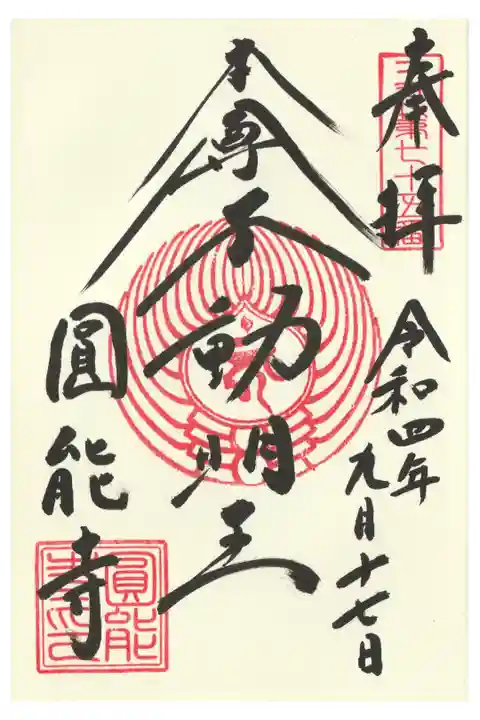 奉拝
令和四年
九月十七日
本尊不動明王
圓能寺
圓能寺印